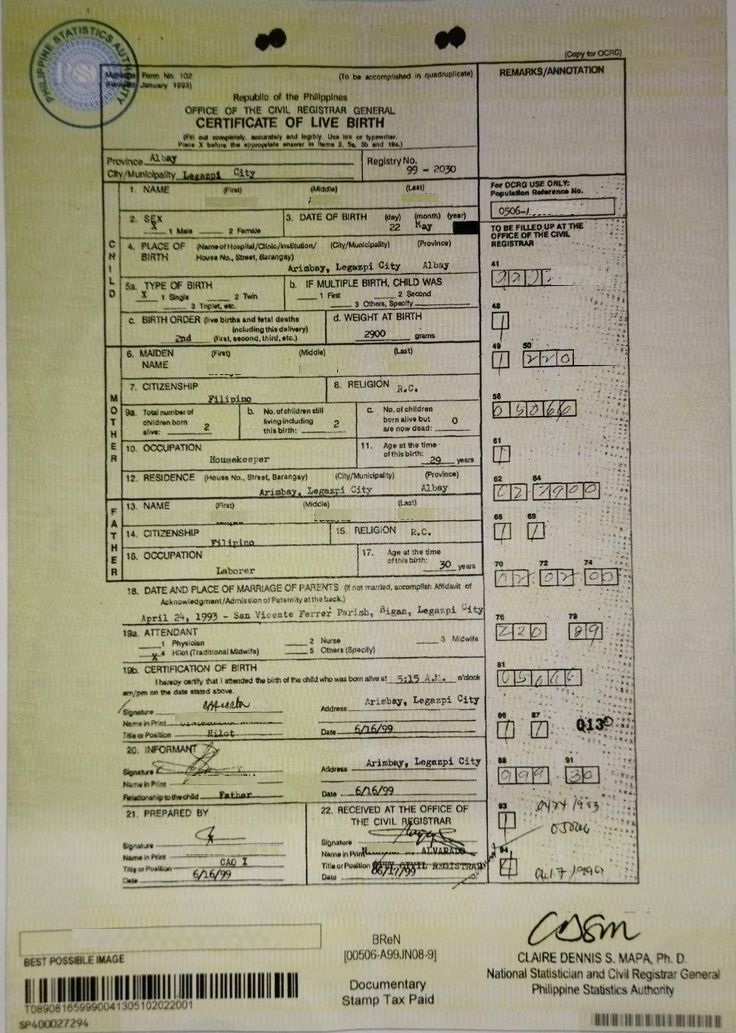 PHILIPPINE STATISTICS AUTHORITY
(Copy for OCRG)
Form No. 102
January 1993)
(To be accomplished in quadruplicate)
REMARKS/ANNOTATION
Republic of the Philippines
OFFICE OF THE CIVIL REGISTRAR GENERAL
CERTIFICATE OF LIVE BIRTH
(Fill out completely, accurately and legibly. Use ink or typewriter.
Place X before the appropriate answer in Items 2, 5a, 5b and 19a.)
Province Albay
Registry No.
City/Municipality Legazpi City
99 - 2030
1. NAME (First) (Middle) (Last)
For OCRG USE ONLY:
Population Reference No.
0506-1
2. SEX
X 1 Male 2 Female
3. DATE OF BIRTH (day) (month) (year)
22 May
TO BE FILLED UP AT THE
OFFICE OF THE CIVIL
REGISTRAR
CHILD
4. PLACE OF BIRTH (Name of Hospital/Clinic/Institution/ (City/Municipality) (Province)
House No., Street, Barangay)
Arimbay, Legazpi City Albay
41
5a. TYPE OF BIRTH
X 1 Single 2 Twin
3 Triplet, etc.
b. IF MULTIPLE BIRTH, CHILD WAS
1 First 2 Second
3 Others, Specify
c. BIRTH ORDER (live births and fetal deaths
including this delivery)
2nd (first, second, third, etc.)
d. WEIGHT AT BIRTH
2900 grams
48
1
49 50
1 220
MOTHER
6. MAIDEN NAME (First) (Middle) (Last)
7. CITIZENSHIP
Filipino
8. RELIGION R.C.
9a. Total number of
children born
alive: 2
b. No. of children still
living including
this birth: 2
c. No. of children
born alive but
are now dead: 0
56
05066
10. OCCUPATION
Housekeeper
11. Age at the time
of this birth: 29 years
61
1
12. RESIDENCE (House No., Street, Barangay) (City/Municipality) (Province)
Arimbay, Legazpi City Albay
62 64
02 2900
FATHER
13. NAME (First) (Middle) (Last)
14. CITIZENSHIP
Filipino
15. RELIGION R.C.
68 69
1 1
16. OCCUPATION
Laborer
17. Age at the time
of this birth: 30 years
70 72 74
02 02 00
18. DATE AND PLACE OF MARRIAGE OF PARENTS (If not married, accomplish Affidavit of
Acknowledgment/Admission of Paternity at the back.)
April 24, 1993 - San Vicente Ferrer Parish, Bigaa, Legazpi City
76 79
220 89
19a. ATTENDANT
1 Physician 2 Nurse 3 Midwife
X 4 Hilot (Traditional Midwife) 5 Others (Specify)
19b. CERTIFICATION OF BIRTH
I hereby certify that I attended the birth of the child who was born alive at 5:15 A.M. o'clock
am/pm on the date stated above.
81
Signature
Address Arimbay, Legazpi City
Name in Print
Title or Position Hilot
Date 6/16/99
86 87
1 1
013
20. INFORMANT
Signature
Address Arimbay, Legazpi City
Name in Print
Relationship to the child Father
Date 6/16/99
88 91
999 30
21. PREPARED BY
Signature
Name in Print
Title or Position CAO I
Date 6/16/99
22. RECEIVED AT THE OFFICE OF
THE CIVIL REGISTRAR
Signature
Name in Print ALVARADO
Title or Position CITY CIVIL REGISTRAR
Date 06/17/99
93
94
BEST POSSIBLE IMAGE
T089081659990041305102022001
SP400027294
BReN
[00506-A99JN08-9]
Documentary
Stamp Tax Paid
CLAIRE DENNIS S. MAPA, Ph. D.
National Statistician and Civil Registrar General
Philippine Statistics Authority